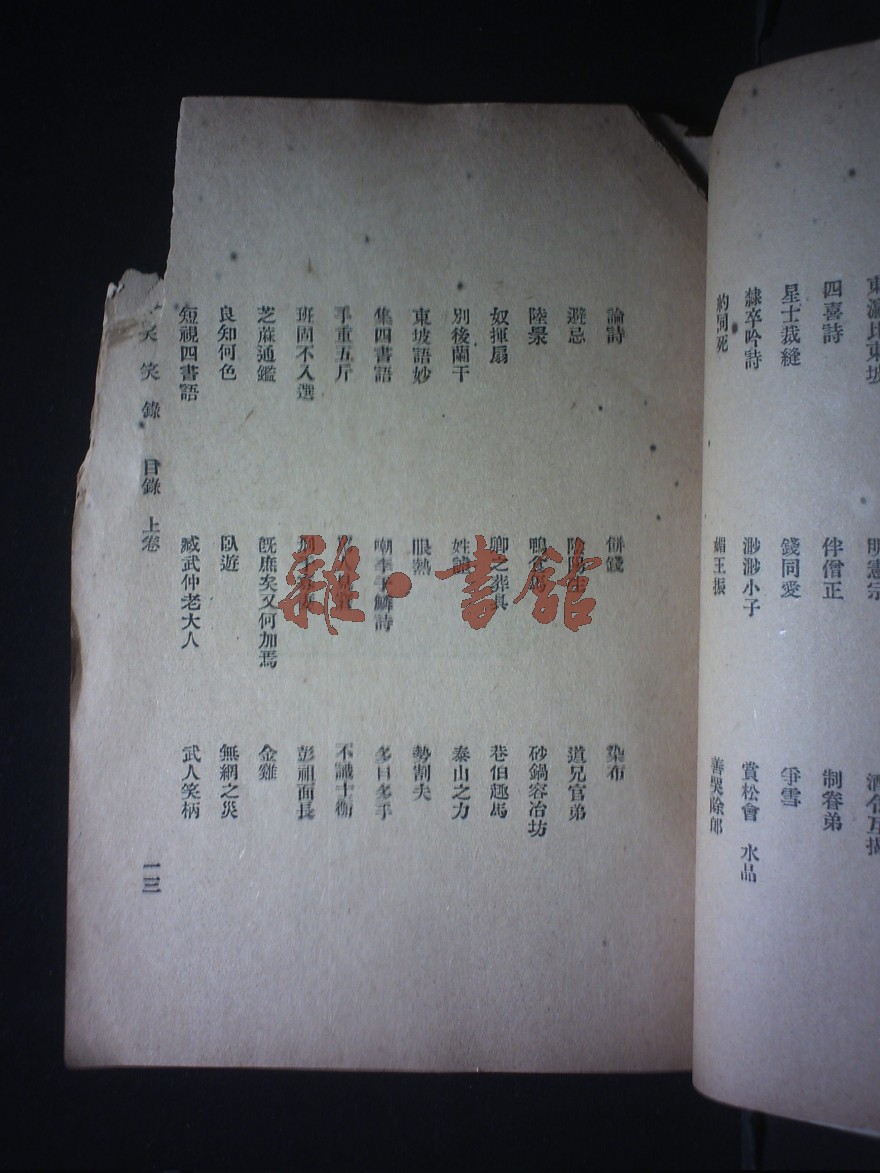 四喜詩 伴僧正 制眷弟
星士裁縫 錢同愛 爭雪
隸卒吟詩 渺渺小子 賞松會 水品
約同死 媚王振 善哭除郎
論詩 併錢 染布
避忌 陰陽生 道兄官弟
陸景 鴨食馬 砂鍋容冶坊
奴揮扇 卿之葬具 巷伯趣馬
別後蘭干 姓 泰山之力
東坡語妙 眼熱 勢割夫
集四書語 嘲李于鱗詩 多目多手
手重五斤 不識士衡
班固不入選 彭祖面長
芝蔴通鑑 旣庶矣又何加焉 金雞
良知何色 臥遊 無網之災
短視四書語 臧武仲老大人 武人笑柄
笑笑錄 目錄 上卷 一三
雜·書館